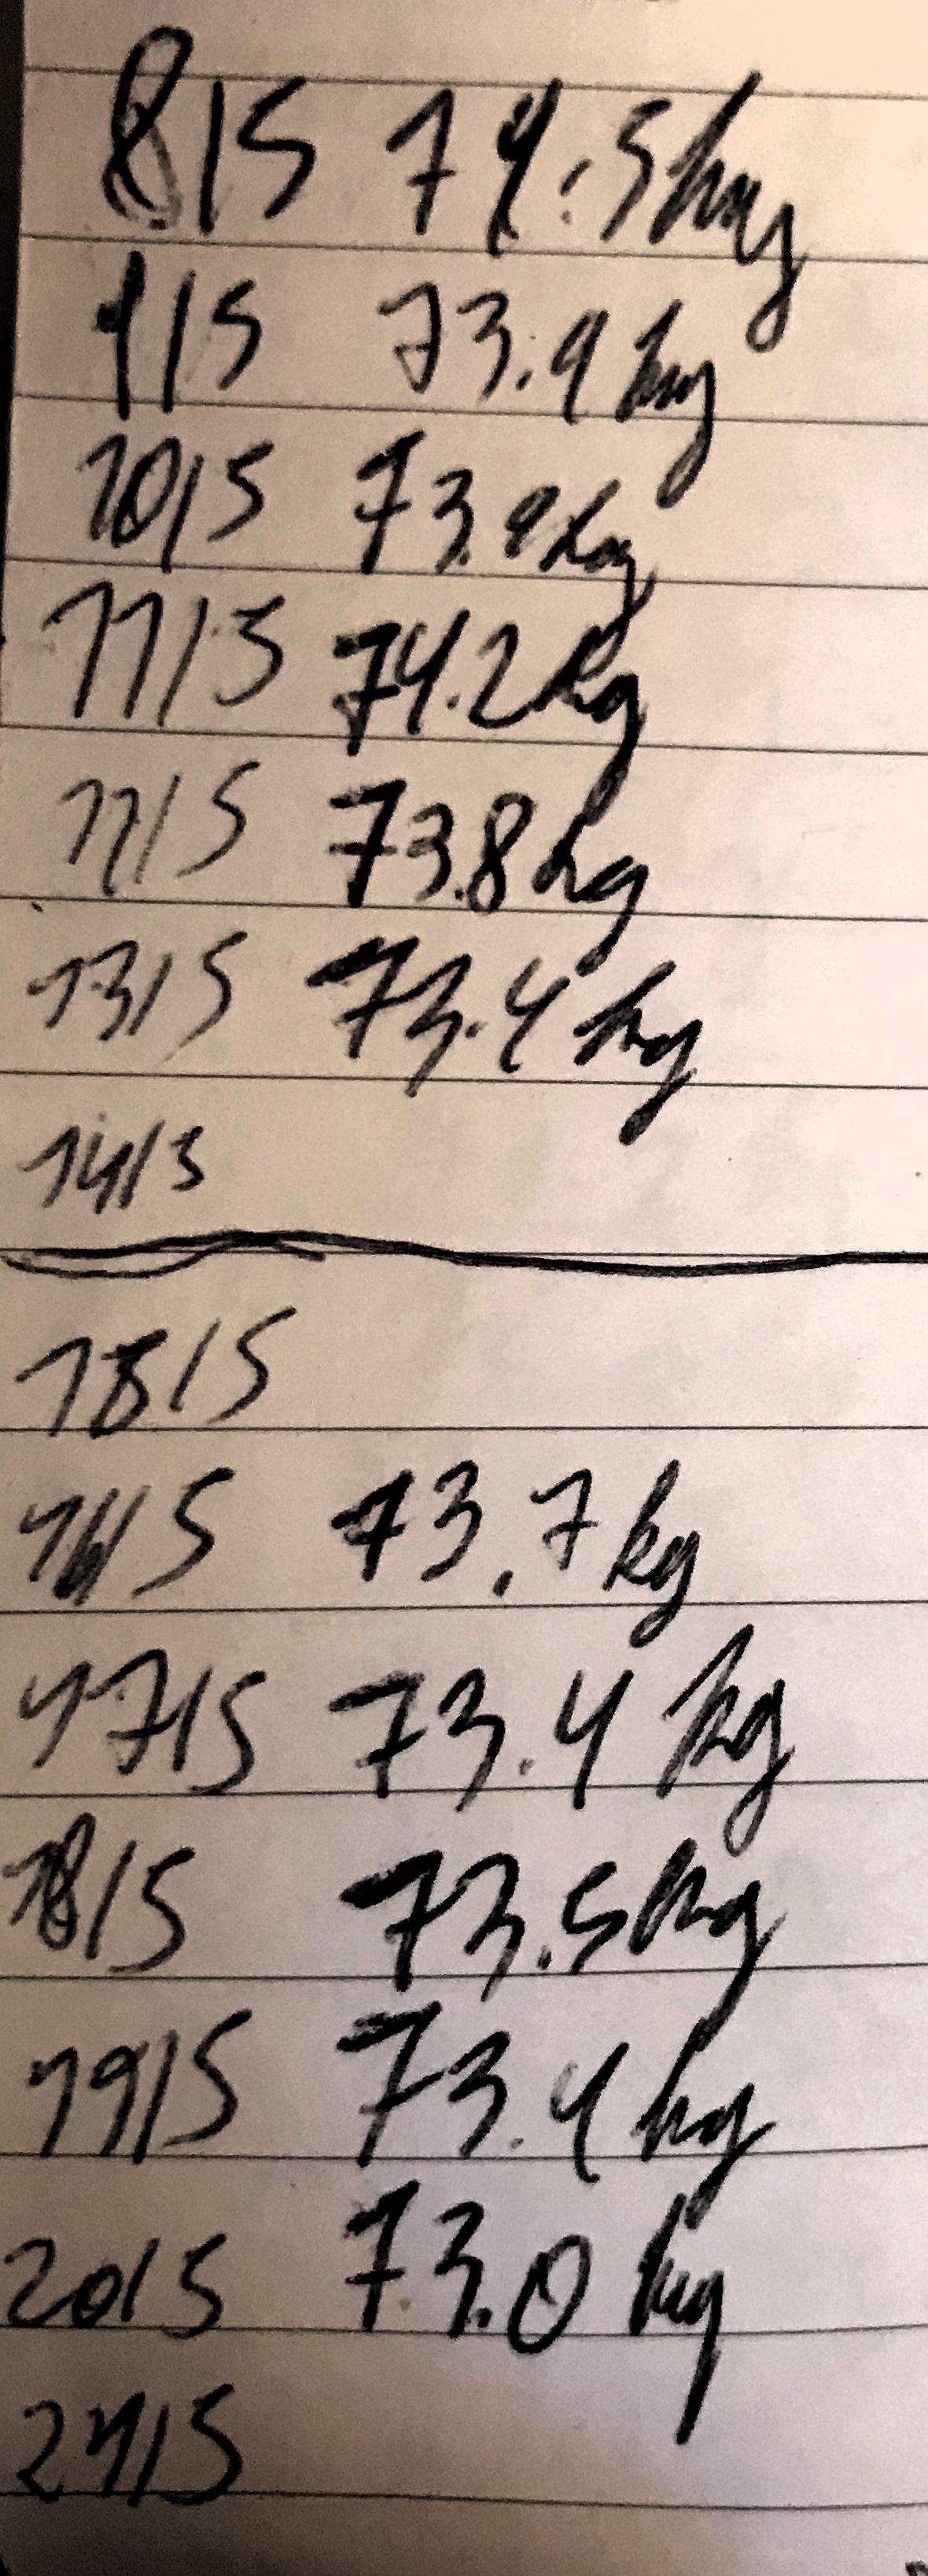 8/5 74.5kg
9/5 73.9kg
10/5 73.9kg
11/5 74.2kg
12/5 73.8kg
13/5 73.4kg
14/5
15/5
16/5 73.7kg
17/5 73.4kg
18/5 73.5kg
19/5 73.4kg
20/5 73.0kg
21/5